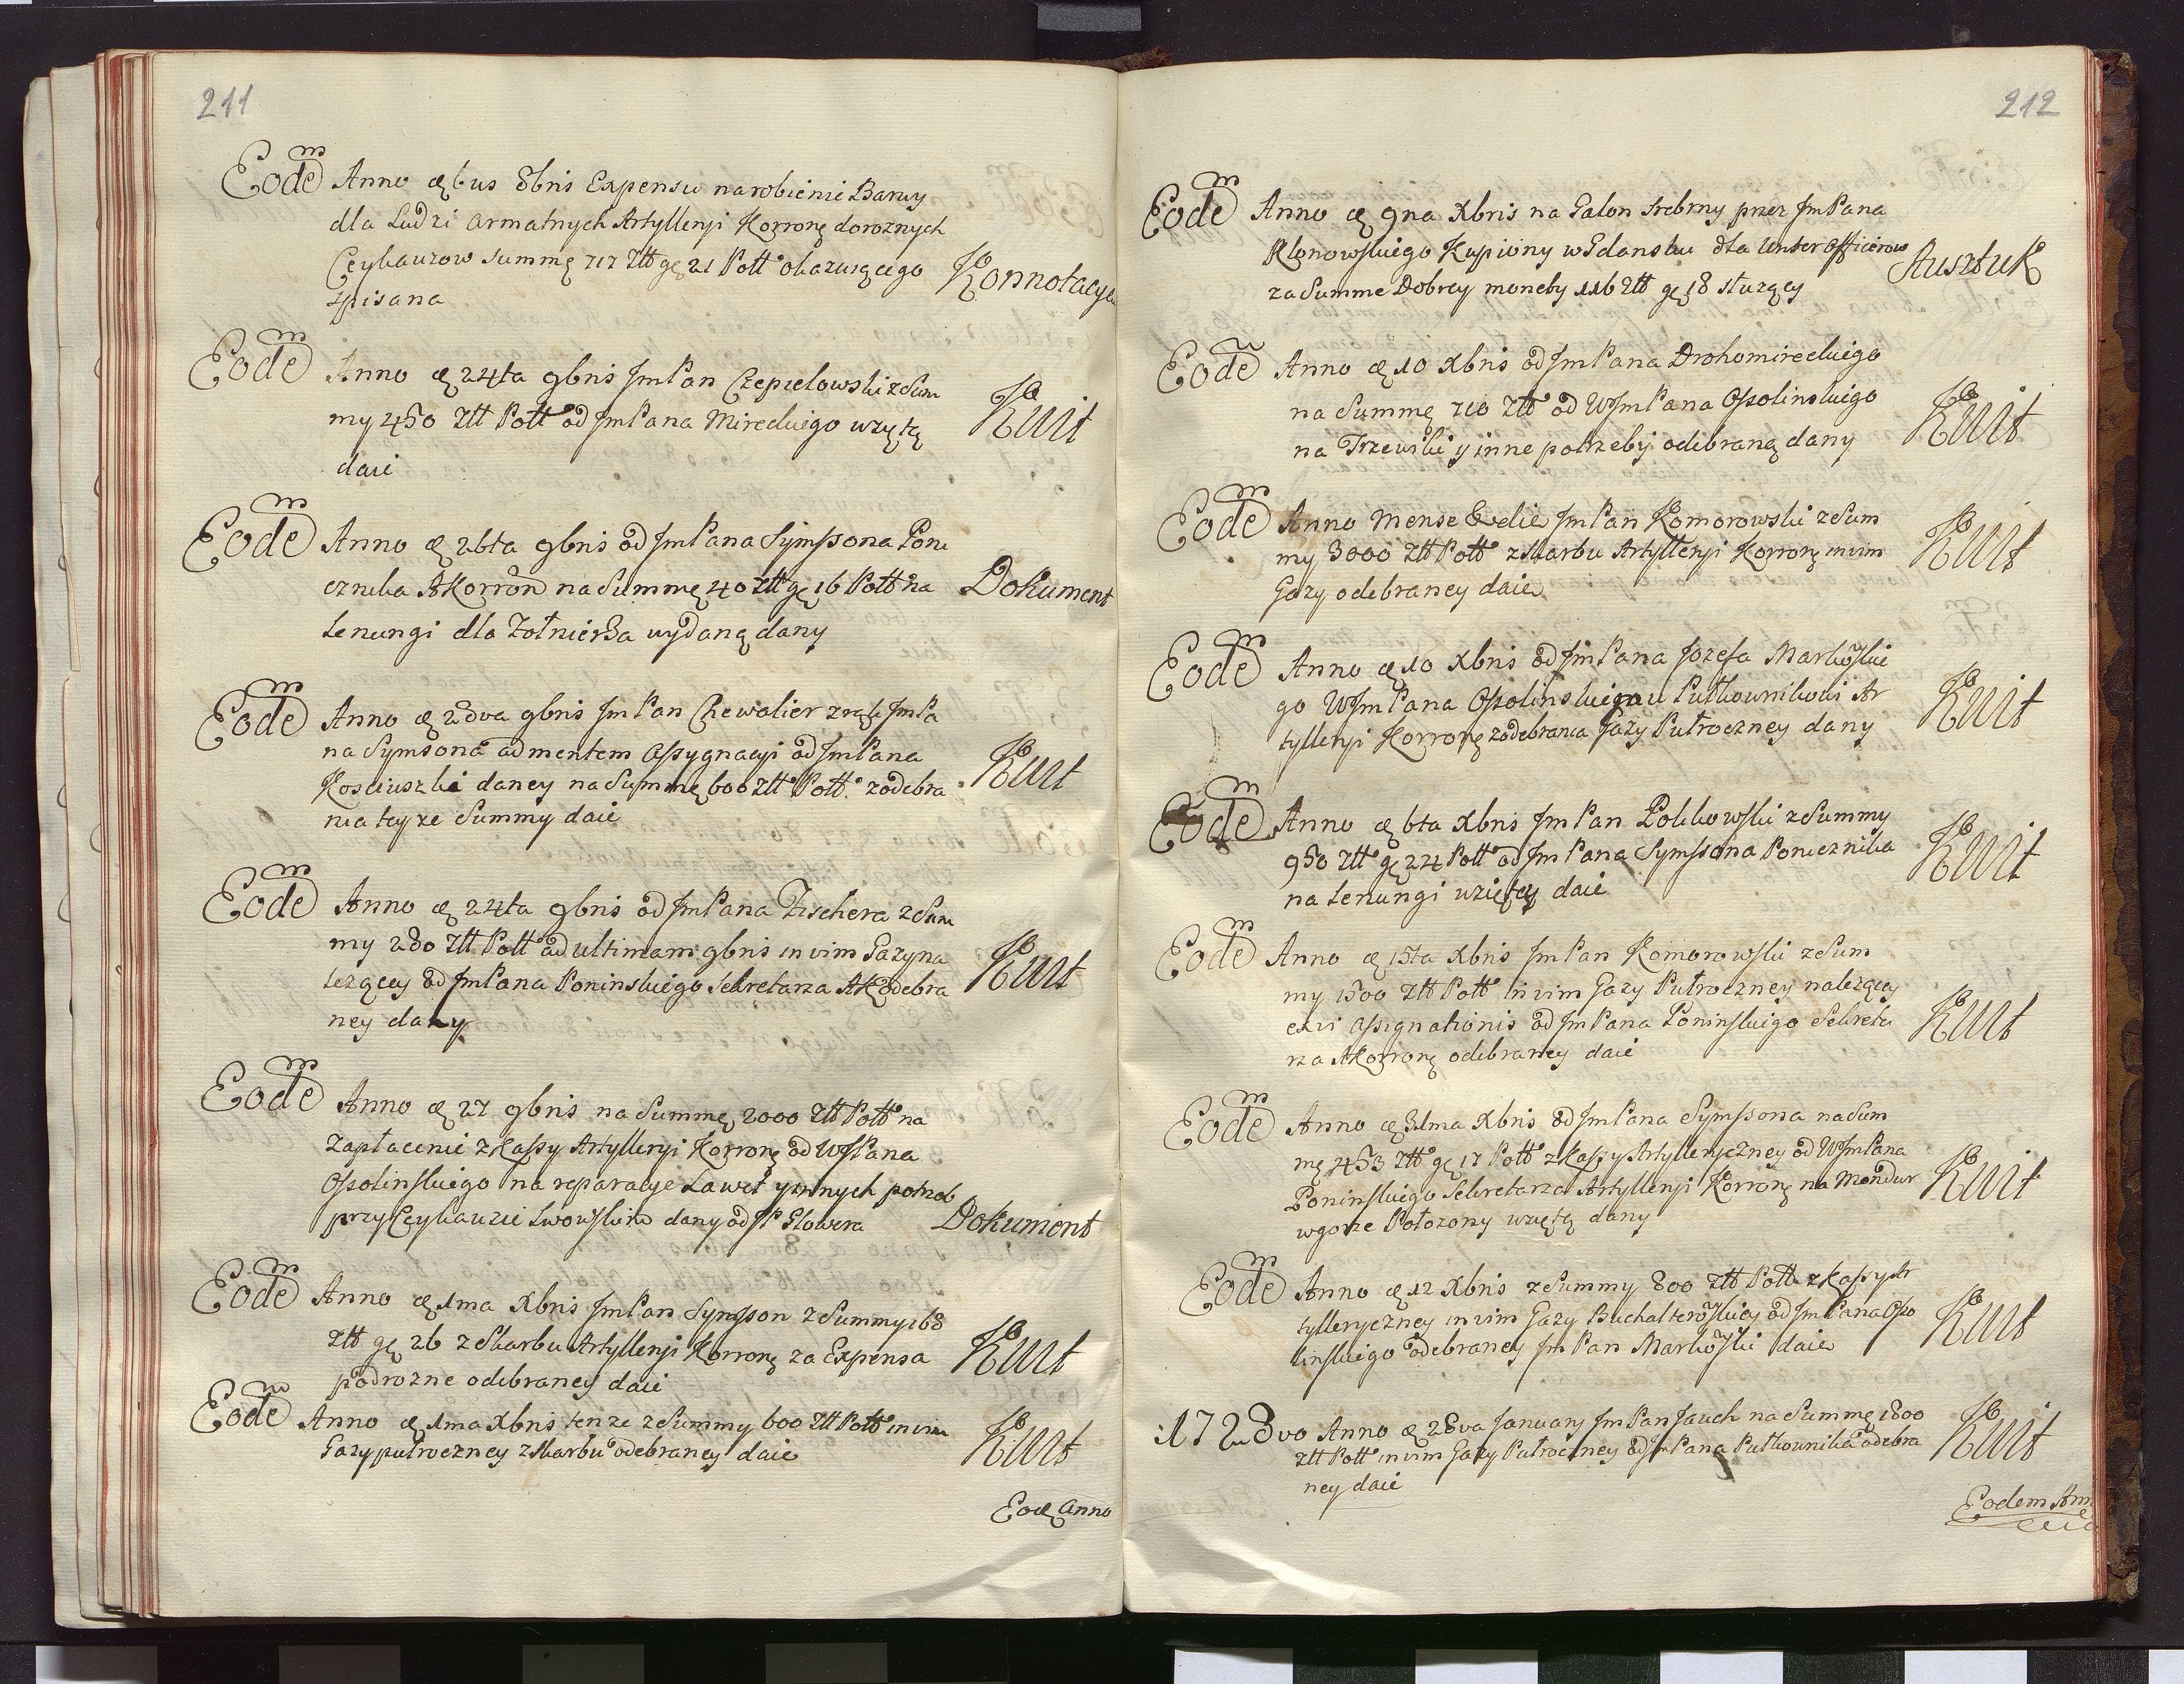 211
Eodem Anno d 6us 8bris Expensu na robienie Barwy
dla Ludzi armatnych Artylleryi Koronney doroznych
Ceykauzow Summę 717 Ztt gr 21 Pott okazuiącego Konnotacya
spisana
Eodem Anno d 24ta 9bris JmPan Czepielowski z Sum
my 450 Ztt Pott od JmPana Mireckiego wzętą Kwit
daie
Eodem Anno d 26ta 9bris od JmPana Sympsona Poru
cznika AKorron na Summę 40 Ztt gr 16 Pott na Dokument
Lenungi dla Zołnierza wydaną dany
Eodem Anno d 28va 9bris JmPan Chewalier z rąk JmPa
na Symsona ad mentem Assygnacyi od JmPana
Kosciuszki daney na Summę 600 Ztt Pott z odebra Kwit
nia teyze Summy daie
Eodem Anno d 24ta 9bris od JmPana Fischera z Sum
my 280 Ztt Pott ad ultimam 9bris in vim Gazy na
lezącey od JmPana Poninskiego Sekretarza AK odebra Kwit
ney dany
Eodem Anno d 27 9bris na Summę 2000 Ztt Pott na
zapłacenie z Kassy Artylleryi Korrone od WJPana
Ossolinskiego na reparacye Lawet y innych potrzeb
przy Ceykauzie Lwowskim dany od JP Glowera Dokument
Eodem Anno d 1ma Xbris JmPan Sympson z Summy 168
Ztt gr 26 z Skarbu Artylleryi Korrone za Expensa Kwit
podrozne odebraney daie
Eodem Anno d 1ma Xbris tenze z Summy 600 Ztt Pott in vim
Gazy pułroczney z Skarbu odebraney daie Kwit
Eod Anno
212
Eodem Anno d 9na Xbris na Galon srebrny przez JmPana
Klonowskiego Kupiony w Gdansku dla Unter Officerow Ausztuk
za Summe Dobrey monety 116 Ztt gr 18 słuzący
Eodem Anno d 10 Xbris od JmPana Drohomireckiego
na Summę 710 Ztt od WJmPana Ossolinskiego Kwit
na Trzewiki y inne potrzeby odebraną dany
Eodem Anno Mense & die JmPan Komorowski z Sum
my 3000 Ztt Pott z Skarbu Artylleryi Korrone in vim Kwit
Gazy odebraney daie
Eodem Anno d 10 Xbris od JmPana Jozefa Markowskie
go WJmPana Ossolinskiego u Pułkownikowi Ar
tylleryi Korrone z odebrania Gazy Pułroczney dany Kwit
Eodem Anno d 6ta Xbris JmPan Polikowski z Summy
950 Ztt gr 24 Pott od JmPana Sympsona Porucznika Kwit
na Lenungi wzietey daie
Eodem Anno d 15ta Xbris JmPan Komorowski z Sum
my 1500 Ztt Pott in vim Gazy Pułroczney nalezącey
ex vi assignationis od JmPana Poninskiego Sekreta Kwit
rza AKorrone odebraney daie
Eodem Anno d 31ma Xbris od JmPana Sympsona na Sum
mę 453 Ztt gr 17 Pott z Kassy Artylleryczney od WJmPana
Poninskiego Sekretarza Artylleryi Korrone na Mondur Kwit
wgorze Połozony wziętą dany
Eodem Anno d 12 Xbris z Summy 800 Ztt Pott z Kassy Ar
tylleryczney in vim Gazy Buchalterowskiey od JmPana Osso Kwit
linskiego odebraney JmPan Markowski daie
1728vo Anno d 28va January JmPan Jauch na Summę 1800
Ztt Pott in vim Gazy Pułroczney od JmPana Pułkownika odebra Kwit
ney daie
Eodem Ann